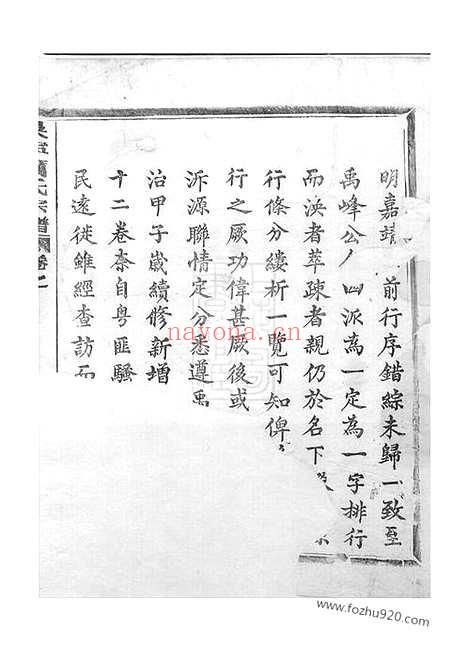 明嘉靖 前行序錯綜未歸一致至
禹峰公 派為一定為一字排行
而泱者萃疎者親仍於名下
行條分縷析一覽可知俾
行之厥功偉甚厥後或
泝源聯情定分悉遵禹
治甲子歲續修新增
十二卷柰自粤匪騷
民遠徙雖經查訪而
氏宗譜 卷一
nayona.cn
www.fozhu920.com